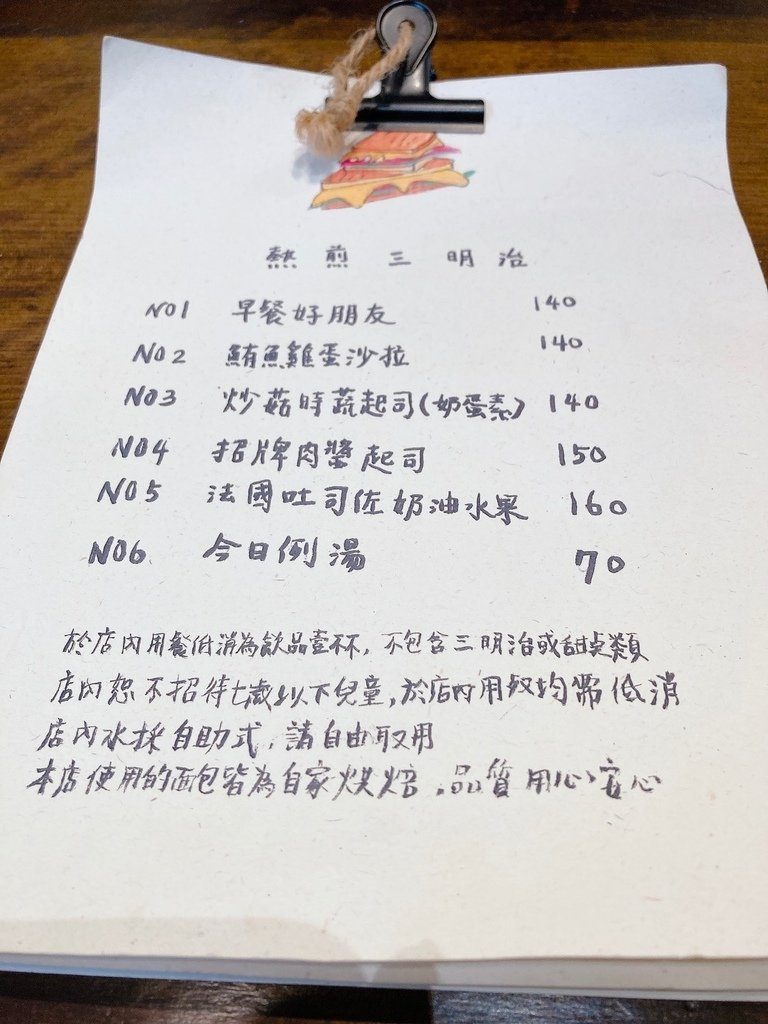 熱煎三明治
NO1 早餐好朋友 140
NO2 鮪魚雞蛋沙拉 140
NO3 炒菇時蔬起司(奶蛋素) 140
NO4 招牌肉醬起司 150
NO5 法國吐司佐奶油水果 160
NO6 今日例湯 70
於店內用餐低消為飲品壹杯，不包含三明治或甜點類
店內恕不招待七歲以下兒童，於店內用餐均需低消
店內水採自助式，請自由取用
本店使用的麵包皆為自家烘焙，品質用心安心